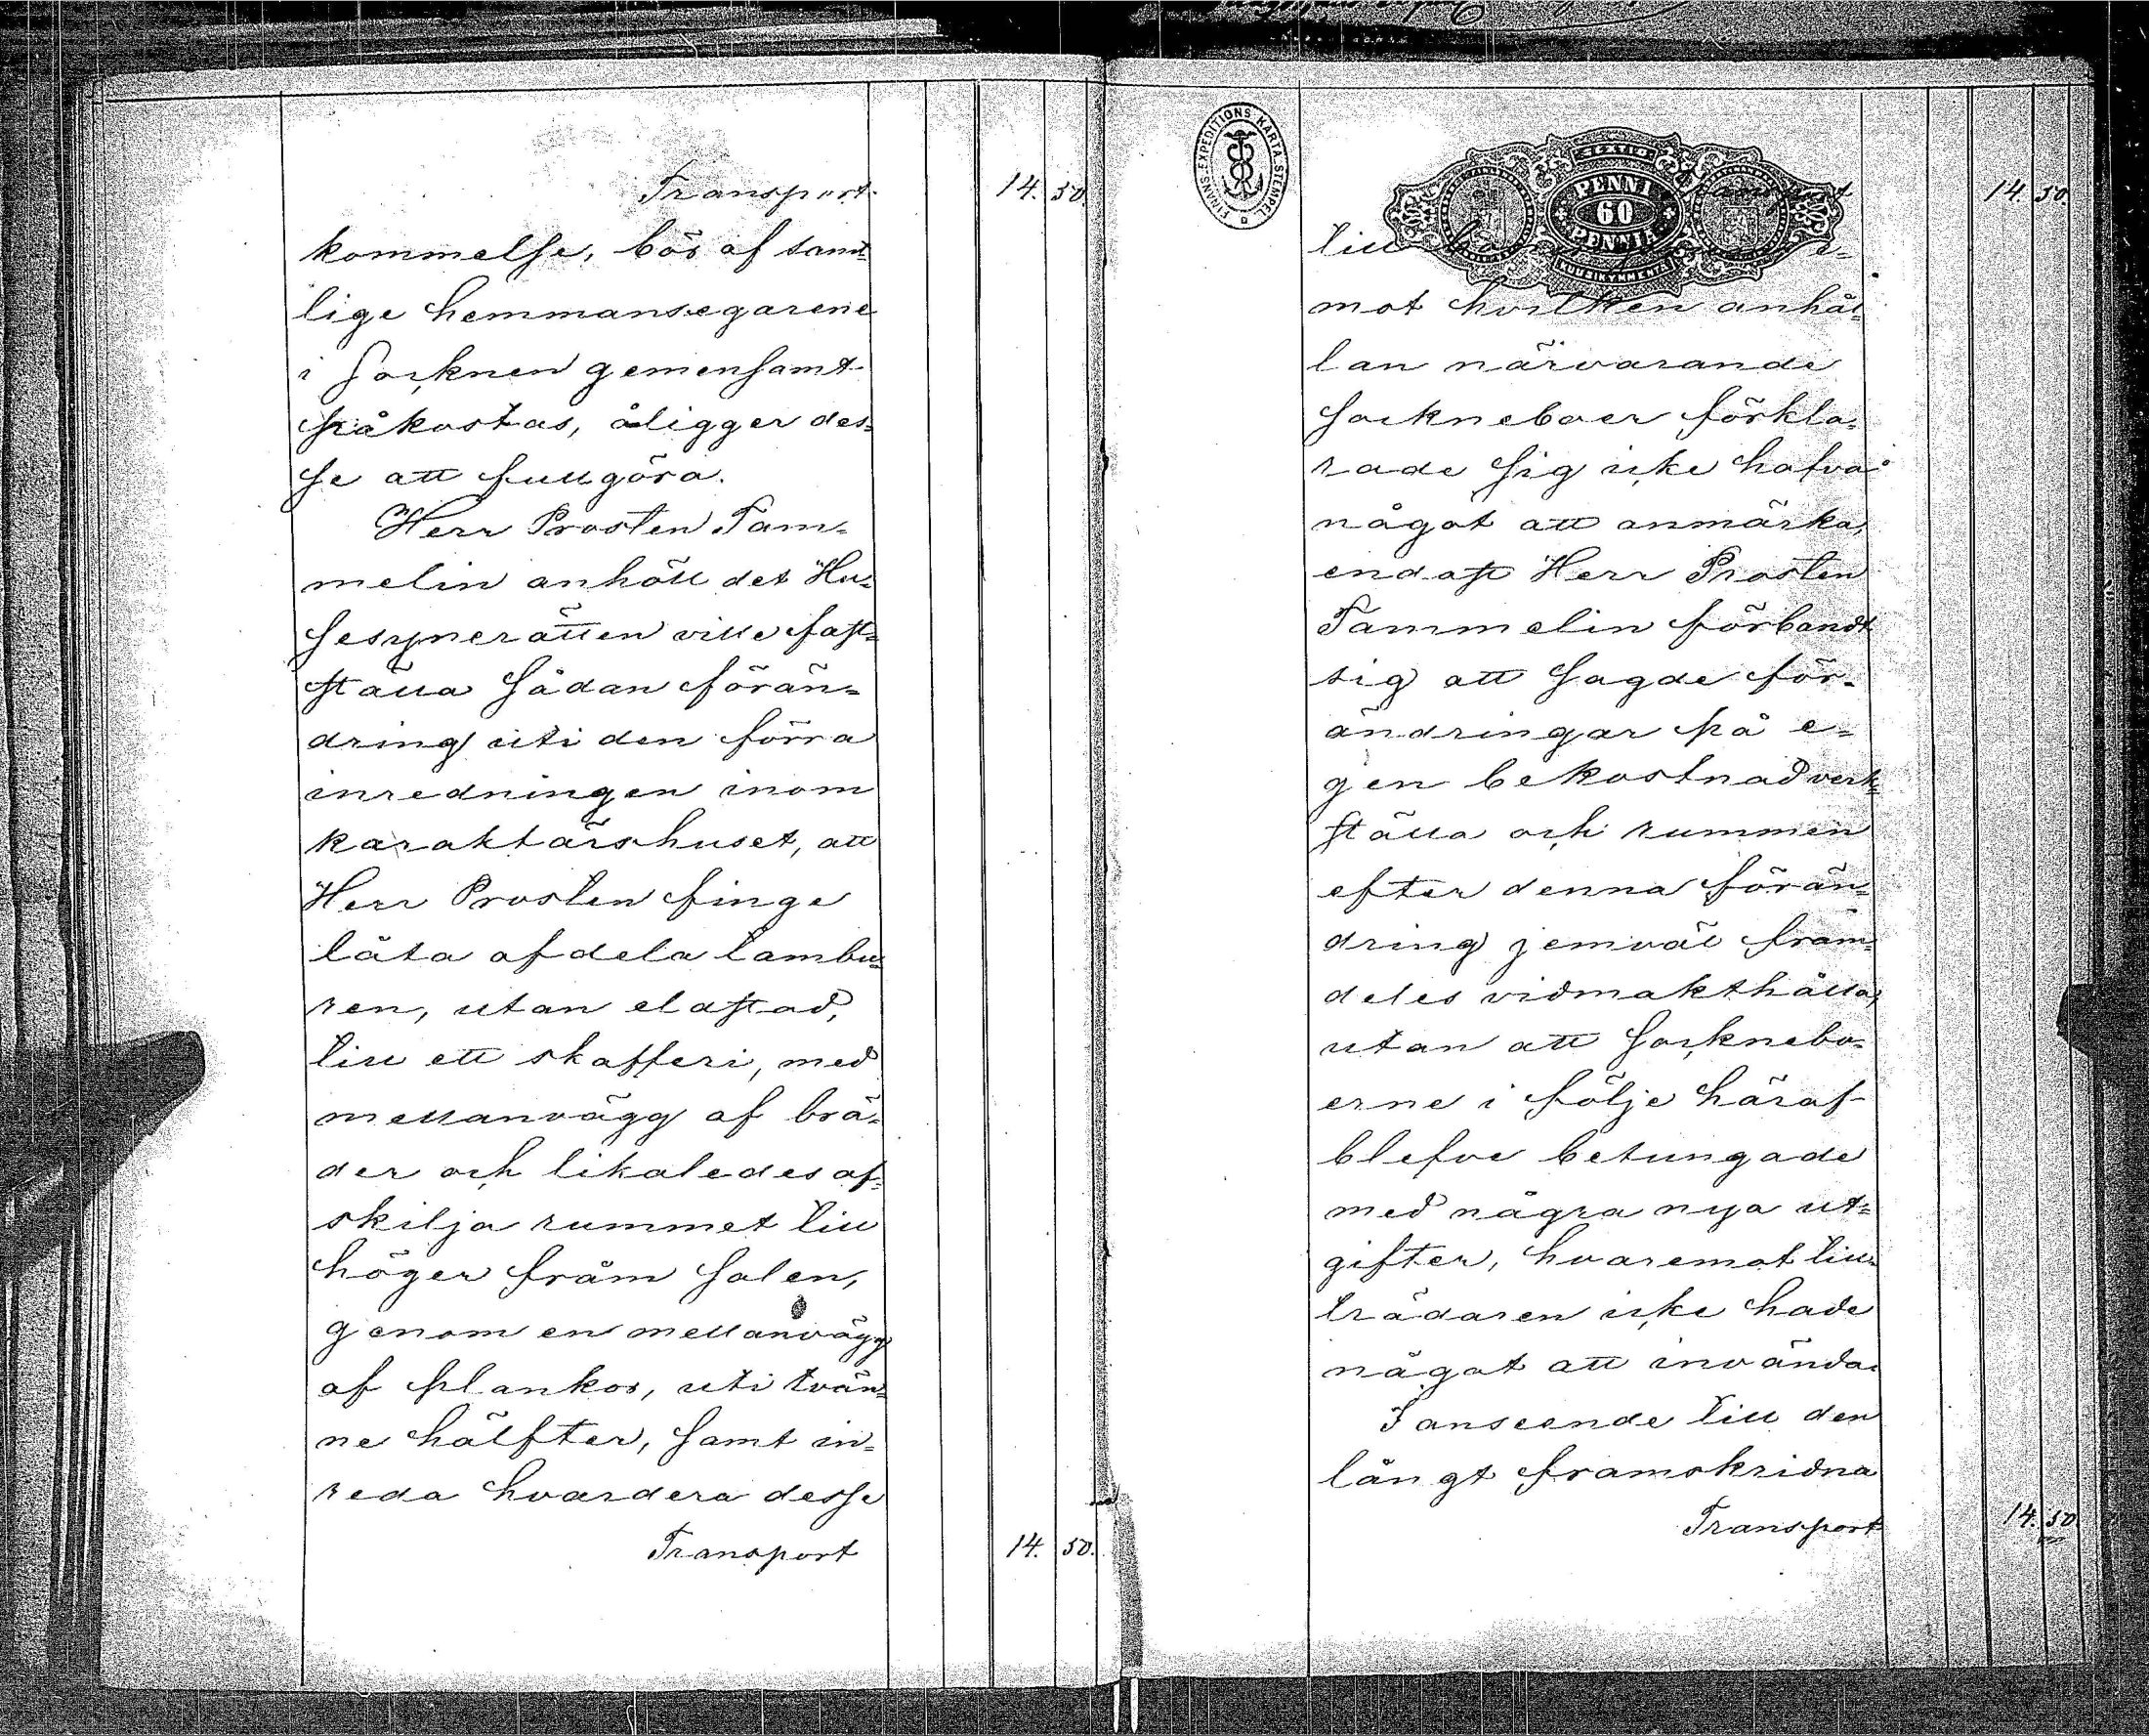 Transport 14. 50.
kommelse, bör af samt-
lige hemmansegarene
i socknen gemensamt
påkostas, åligger des-
se att fullgöra.
Herr Prosten Tam-
melin anhöll det Hu-
sesynerätten ville fast-
ställa sådan förän-
dring uti den förra
inredningen inom
karaktärshuset, att
Herr Prosten finge
låta afdela tambu-
ren, utan eldstad,
till ett skafferi, med
mellanvägg af brä-
der och likaledes af-
skilja rummet till
höger från salen,
genom en mellanvägg
af plankor, uti tvän-
ne hälfter, samt in-
reda hvardera desse
Transport 14. 50.
FINANS-EXPEDITIONS KARTA-STEMPEL
PENNI
60
PENNIÄ
KUUSIKYMMENTÄ
14. 50.
till e-
mot hvilken anhål-
lan närvarande
sockneboer förkla-
rade sig icke hafva
något att anmärka,
endast Herr Prosten
Tammelin förbandt
sig att sagde för-
ändringar på e-
gen bekostnad verk-
ställa och rummen
efter denna förän-
dring jemväl fram-
deles vidmakthålla,
utan att sockneboe-
erne i följe häraf
blefve betungade
med några nya ut-
gifter, hvaremot till-
trädaren icke hade
något att invända.
I anseende till den
långt framskridna
Transport 14. 50